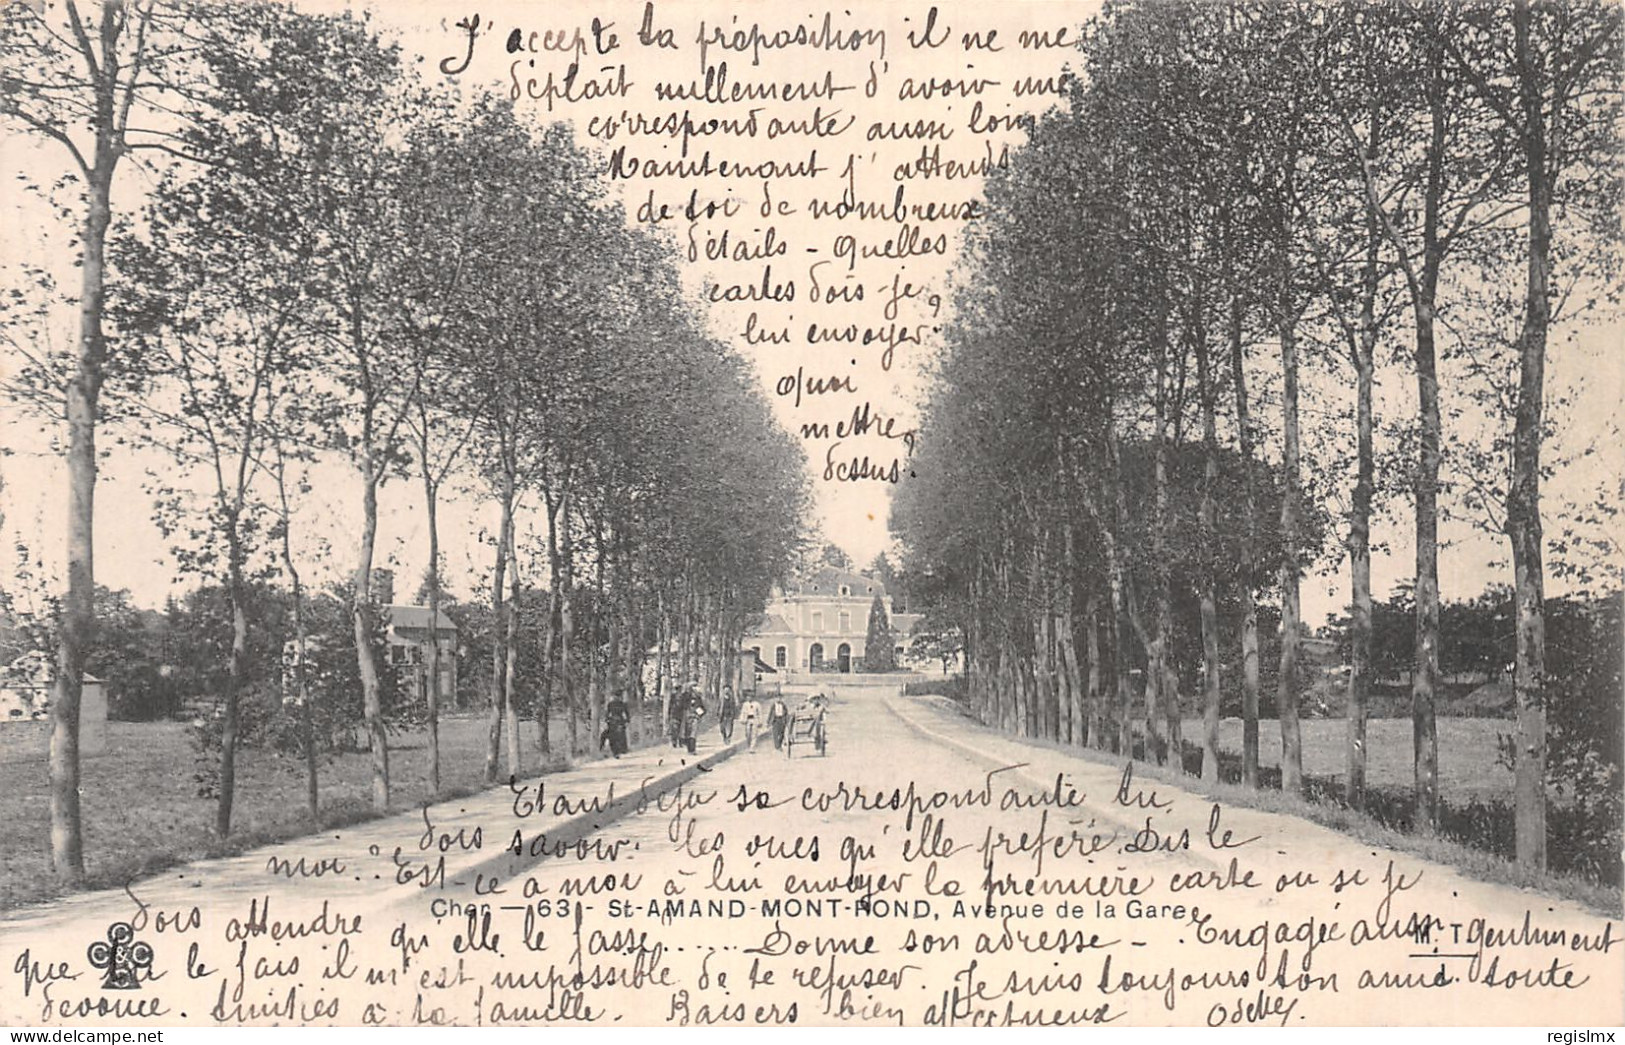 J'accepte ta préposition il ne me
déplaît nullement d'avoir une
correspondante aussi loin
Maintenant j'attends
de toi de nombreux
détails - Quelles
cartes dois-je
lui envoyer?
Quoi
mettre
dessus?
Etant déjà sa correspondante tu
dois savoir les vues qu'elle préfère. Dis le
moi. Est-ce à moi à lui envoyer la première carte ou si je
Cher - 63 - St-AMAND-MONT-ROND, Avenue de la Gare
dois attendre qu'elle le fasse ...... Donne son adresse - Engagée aussi gentiment
M. T.
que tu le fais il m'est impossible de te refuser. Je suis toujours ton amie toute
dévouée. Amitiés à ta famille. Baisers bien affectueux Odette
delcampe.net
regislmx